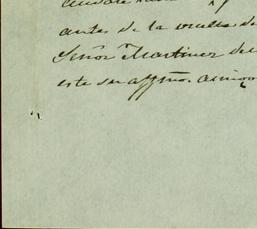 antes de la vuelta de
Señor Martinez del
este su affmo. amigo